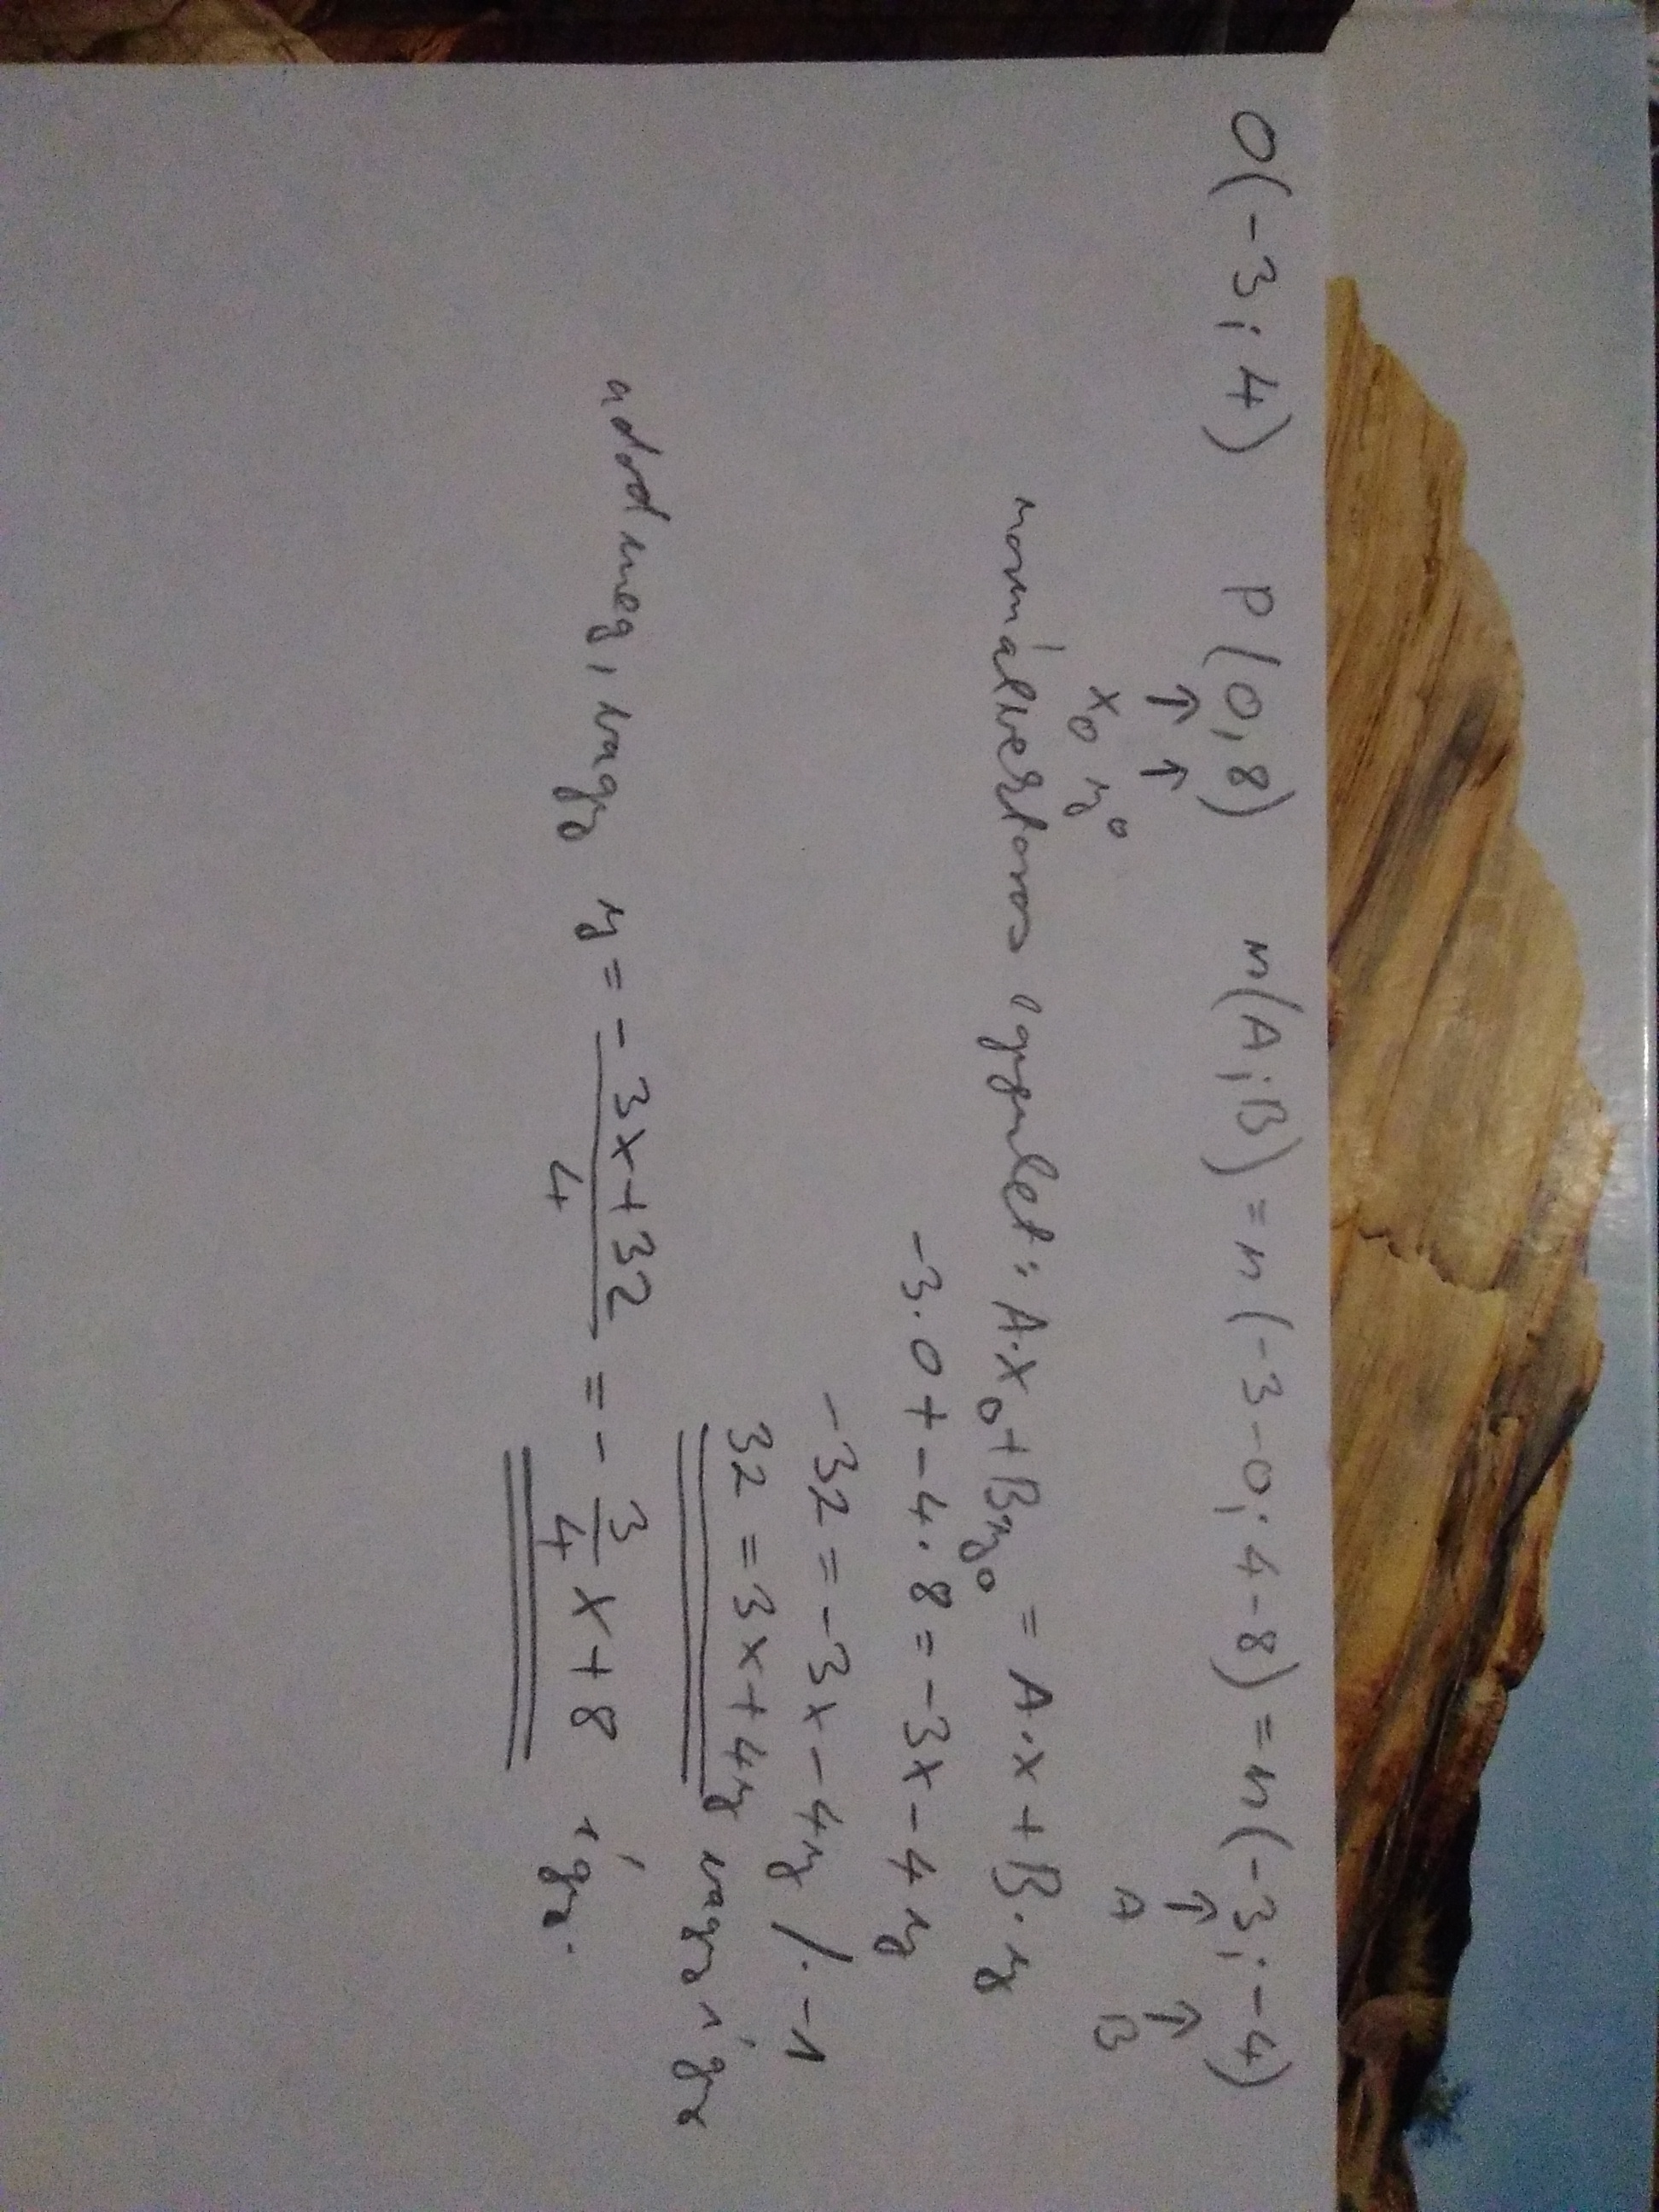 O(-3;4) P(0;8) n(A;B)=n(-3-0;4-8)=n(-3;-4)
↑ ↑ ↑ ↑
x₀ y₀ A B
normálvektoros egyenlet: A·x₀+By₀=A·x+B·y
-3·0+-4·8=-3x-4y
-32=-3x-4y /·-1
32=3x+4y vagy így
adod meg, vagy y=-3x+32/4=-3/4x+8 így.